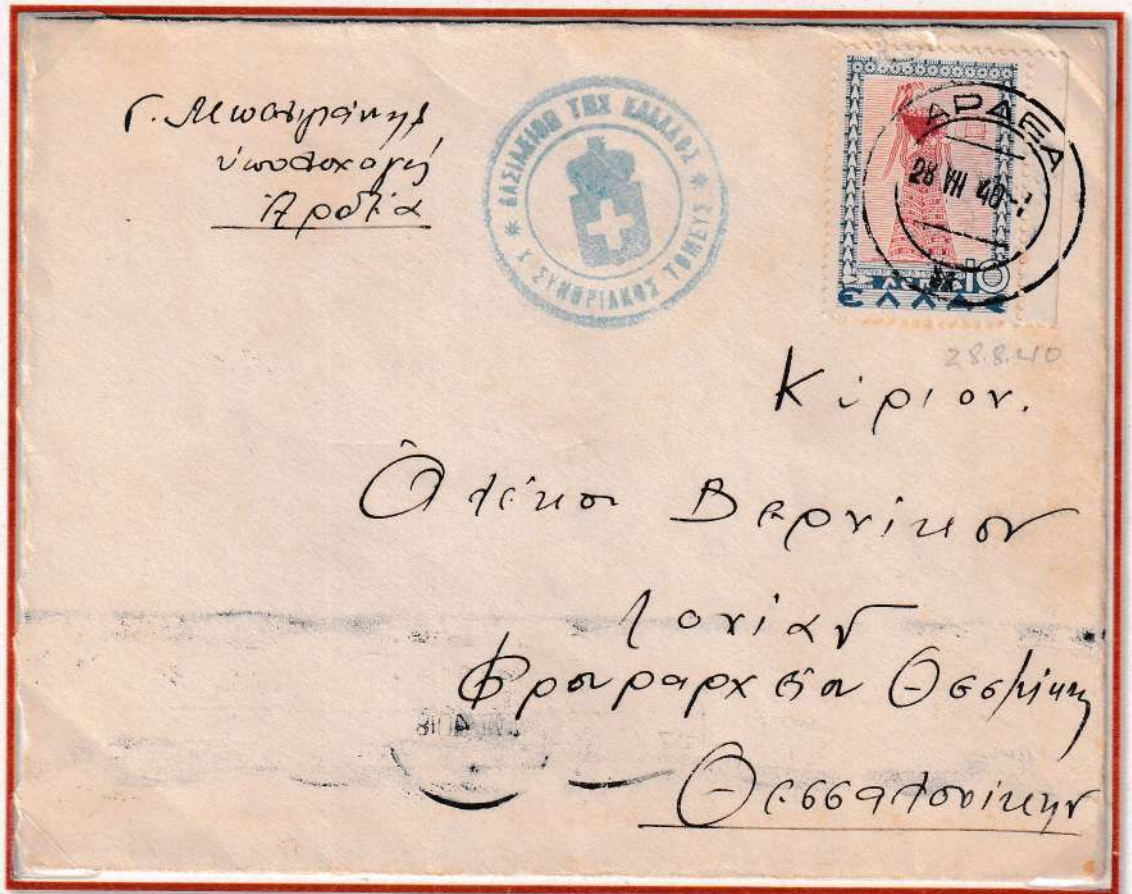 Γ.
ὑπολοχαγός
Ἀρδέα
* ΒΑΣΙΛΕΙΟΝ ΤΗΣ ΕΛΛΑΔΟΣ *
Χ ΣΥΝΟΡΙΑΚΟΣ ΤΟΜΕΥΣ
ΑΡΔΕΑ
28 VIII 40
10
ΕΛΛΑΣ
28.8.40
Κύριον.
Ἀλέκον Βερνίκον
Λοχίαν
Φρουραρχεῖον Θεσ/νίκης
Θεσσαλονίκην